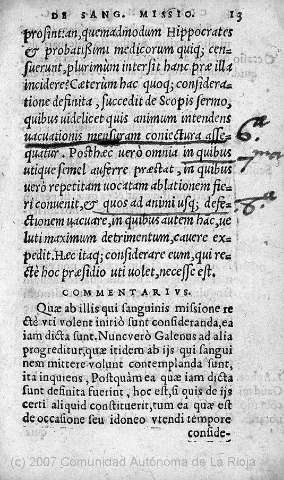 DE SANG. MISSIO. 13
prosint: an, quemadmodum Hippocrates
& probatißimi medicorum quiq; cen-
suerunt, plurimùm intersit hanc præ illa
incidere? Cæterùm hac quoq; considera-
tione definita, succedit de Scopis sermo,
quibus uidelicet quis animum intendens
uacuationis mensuram coniectura asse-
quatur. Posthæc verò omnia in quibus
utique semel auferre præstat, in quibus
verò repetitam uocatam ablationem fie-
ri conuenit, & quos ad animi usq; defe-
ctionem uacuare, in quibus autem hac, ue
luti maximum detrimentum, cauere ex-
pedit. Hæc itaq; considerare eum, qui re-
ctè hoc præsidio uti volet, necesse est.
6ª
7
8ª
COMMENTARIVS.
Quæ ab illis qui sanguinis missione re
ctè vti volent initiò sunt consideranda, ea
iam dicta sunt. Nunc verò Galenus ad alia
progreditur, quæ itidem ab ijs qui sangui
nem mittere volunt contemplanda sunt,
ita inquiens, Postquàm ea quæ iam dicta
sunt definita fuerint, hoc est, si quis de ijs
certi aliquid constituerit, tum ea quæ est
de occasione seu idoneo vtendi tempore
conside-
(c) 2007 Comunidad Autónoma de La Rioja